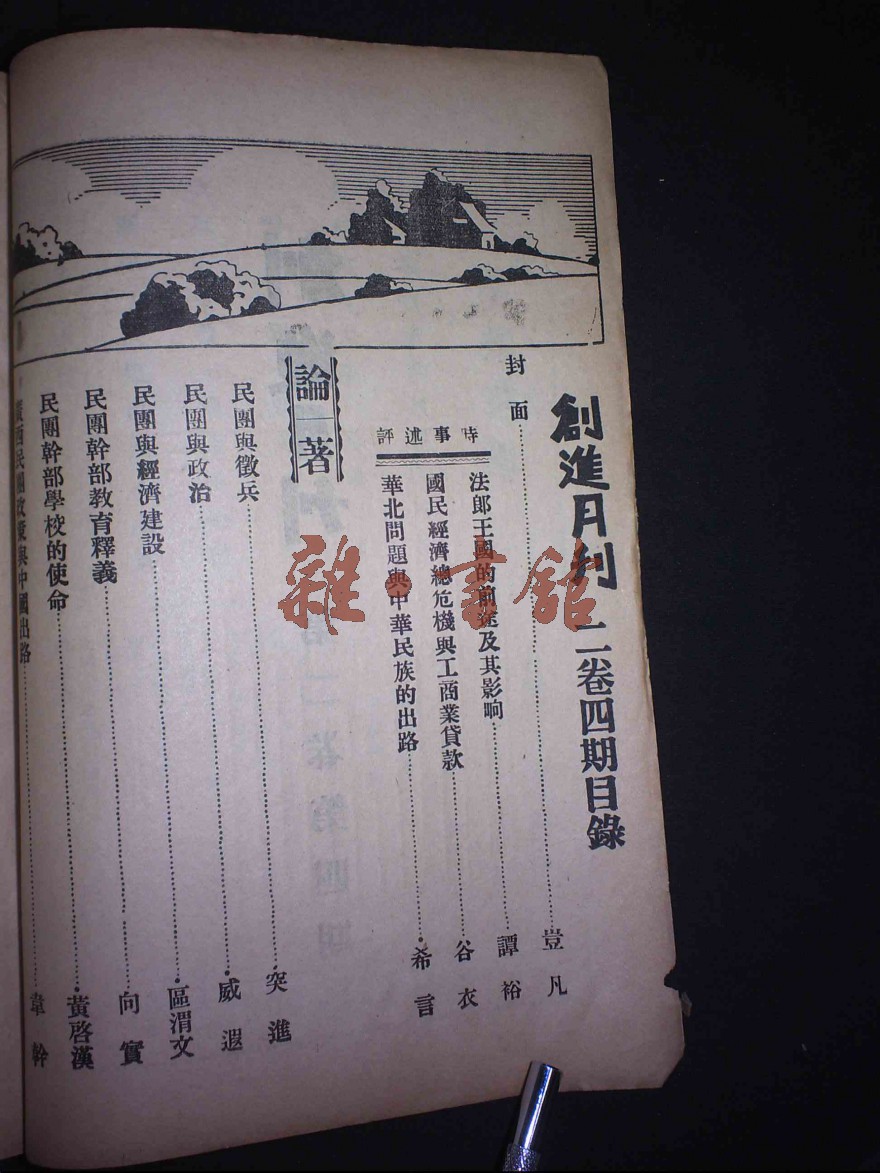 創進月刊 二卷四期目錄
封面……豈凡
時事述評
法郎王國的前途及其影响……譚裕
國民經濟總危機與工商業貸款……谷衣
華北問題與中華民族的出路……希言
論著
民團與徵兵……突進
民團與政治……威遐
民團與經濟建設……區渭文
民團幹部教育釋義……向實
民團幹部學校的使命……黃啓漢
廣西民團政策與中國出路……韋幹
雜·書館